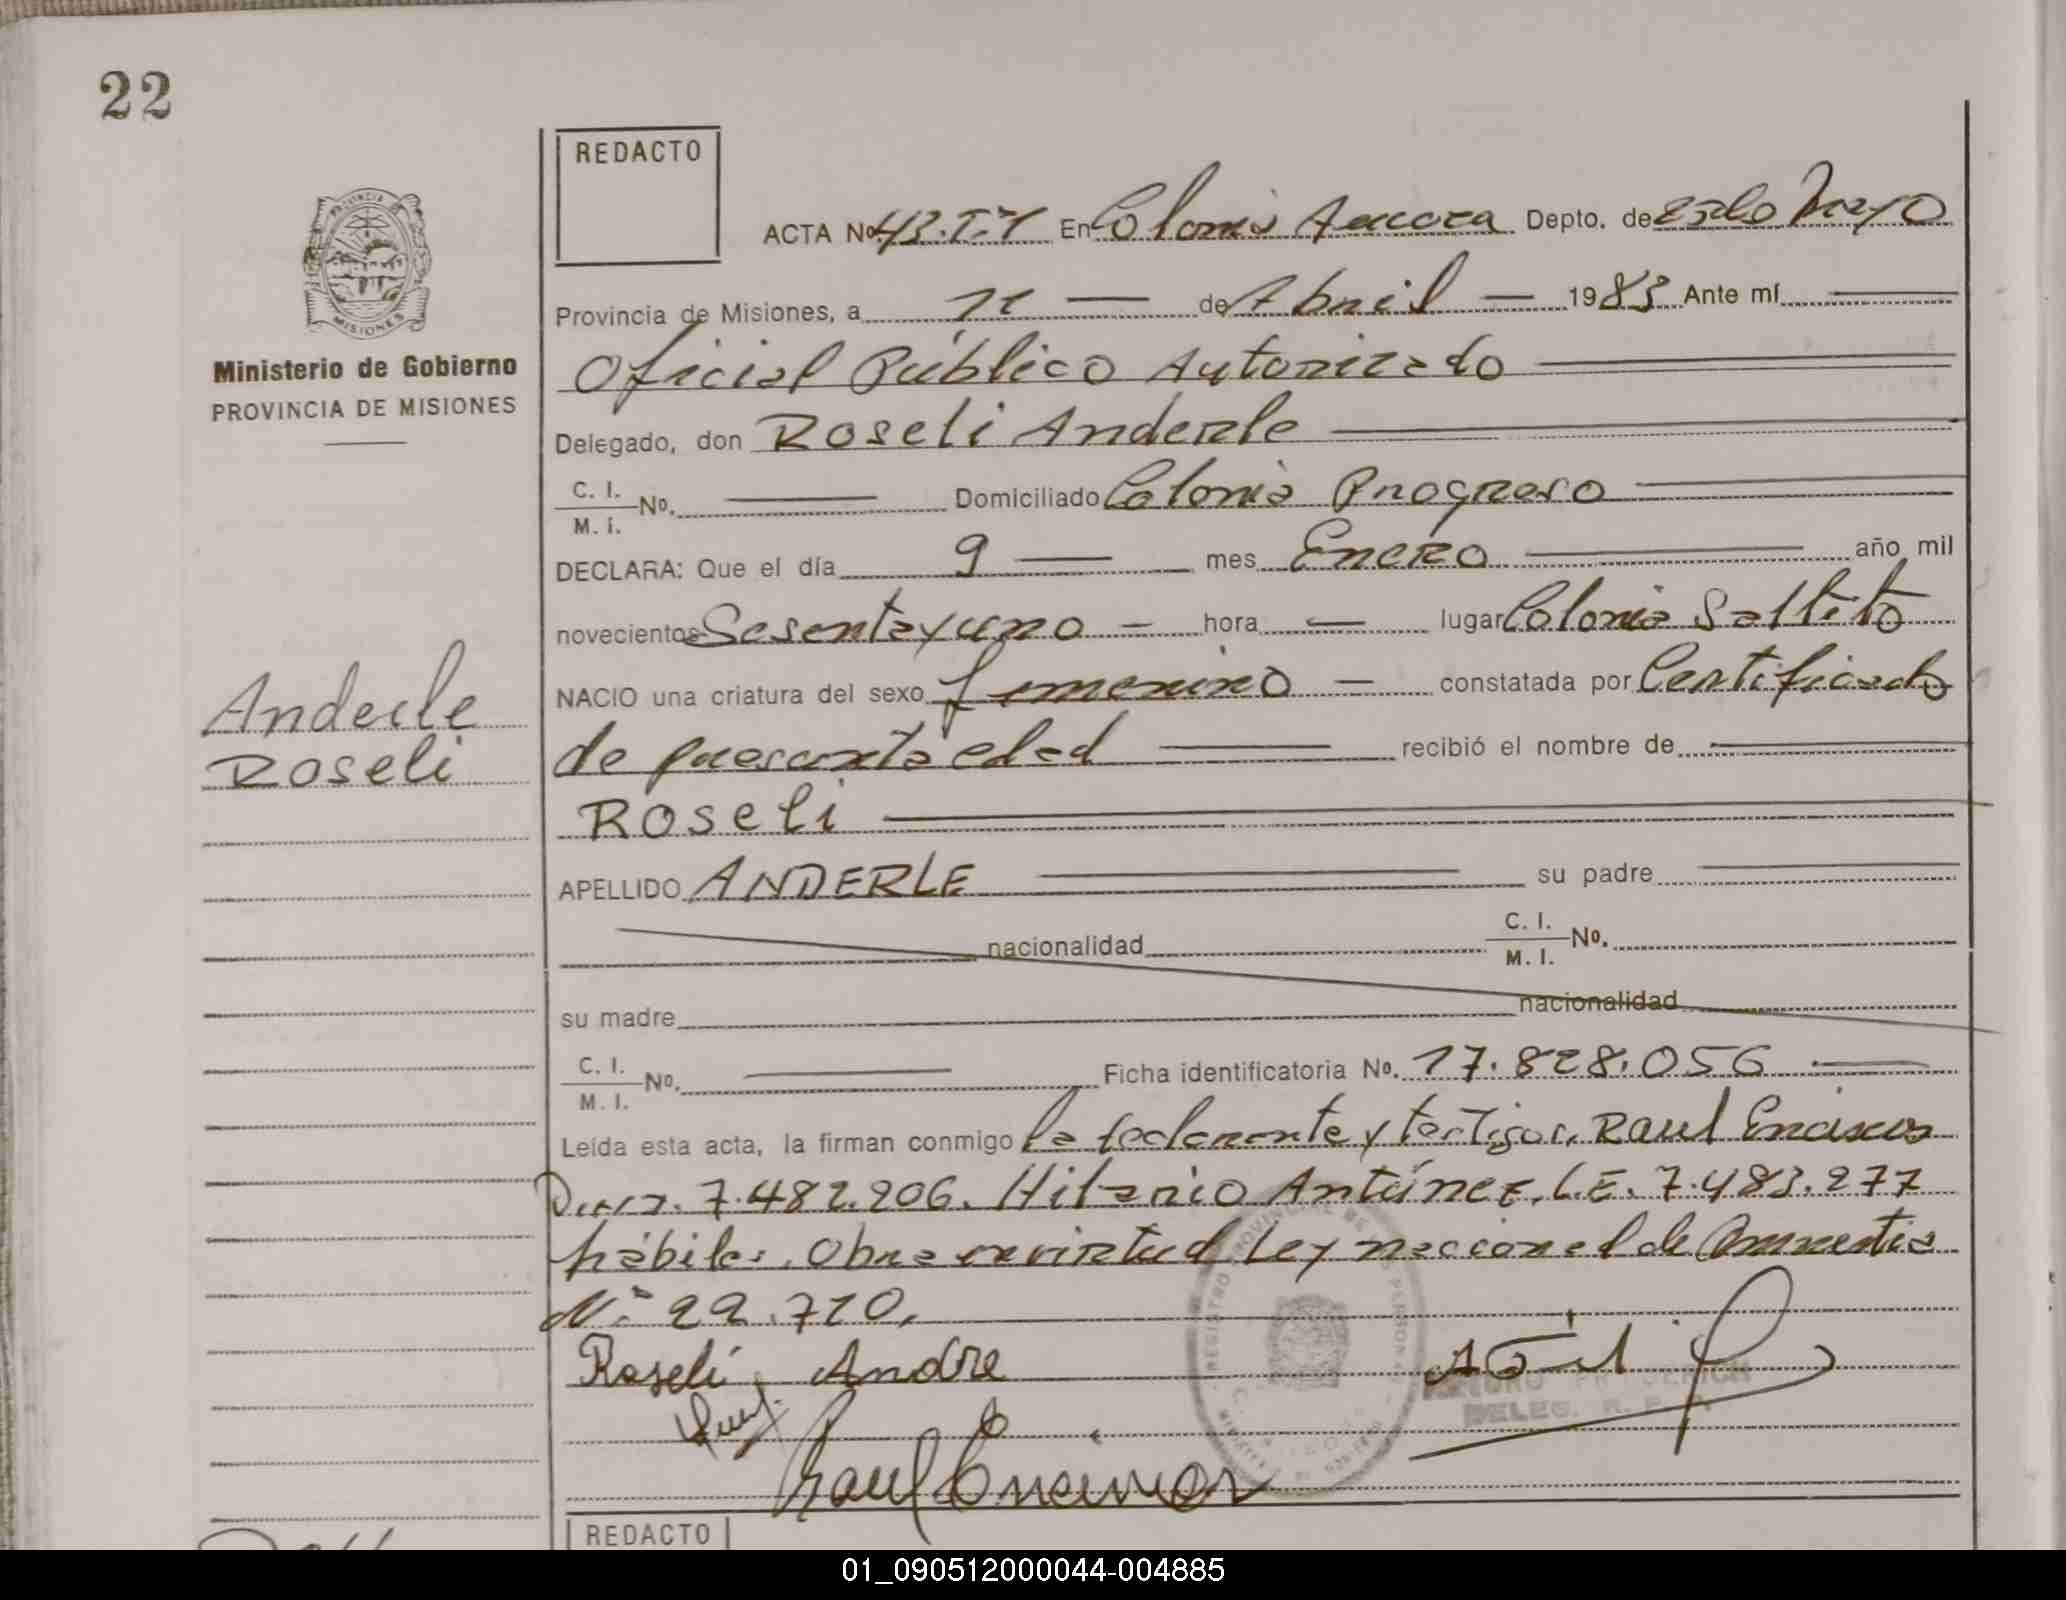 22
REDACTO
ACTA Nº 43.T.1 En Colonia Aurora Depto. de 25 de Mayo
Provincia de Misiones, a 11 de Abril 1983 Ante mí
Oficial Público Autorizado
Delegado, don Roseli Anderle
C. I. M. I. Nº. Domiciliado Colonia Progreso
DECLARA: Que el día 9 mes Enero año mil
novecientos Sesenta y uno hora lugar Colonia Saltito
NACIO una criatura del sexo femenino constatada por Certificado
de presunta edad recibió el nombre de
Roseli
APELLIDO ANDERLE su padre
nacionalidad C. I. M. I. Nº.
su madre nacionalidad
C. I. M. I. Nº. Ficha identificatoria Nº. 17.828.056
Leída esta acta, la firman conmigo la declarante y testigos, Raul Encinas
7.482.206. Hilario Antúnez, L.E. 7.483.277
hábiles. Obra en virtud Ley nacional de Amnestia
Nº 22.710.
Roseli Andre
DELEG. R. P.
REDACTO
Ministerio de Gobierno
PROVINCIA DE MISIONES
PROVINCIA DE
MISIONES
Anderle
Roseli
01_090512000044-004885